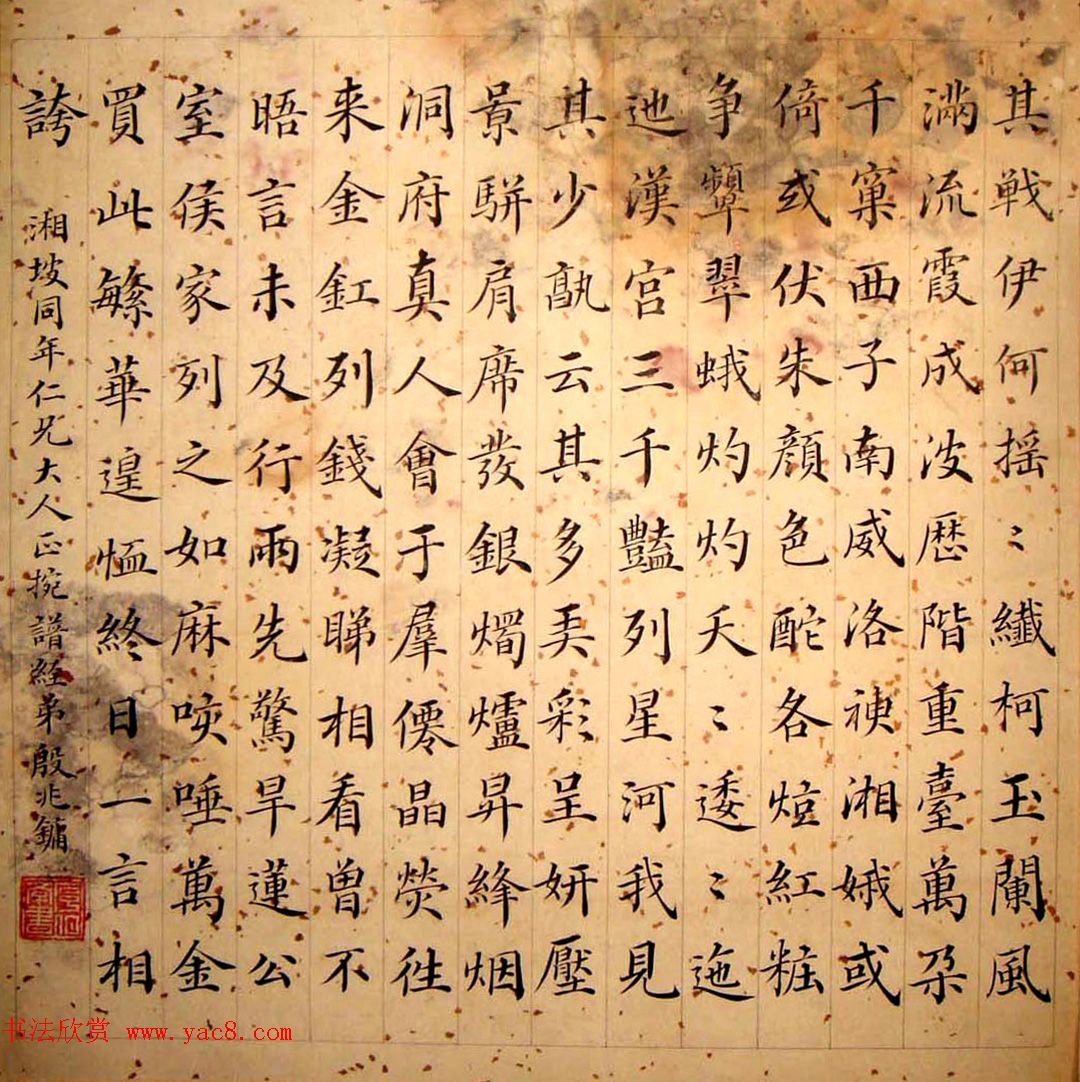 其戦伊何摇〻纖柯玉闌風
滿流霞成波歷階重臺萬朶
千窠西子南威洛神湘娥或
倚或伏朱顔色酡各炫紅粧
争顰翠蛾灼灼夭〻逶〻迤
迆漢宫三千豔列星河我見
其少孰云其多弄彩呈妍壓
景駢肩席發銀燭爐昇絳烟
洞府真人會于羣僊晶熒往
来金釭列錢凝睇相看曾不
晤言未及行雨先驚旱蓮公
室侯家列之如麻咳唾萬金
買此繁華遑恤終日一言相
誇
湘坡同年仁兄大人正捥譜經弟殷兆鏞
书法欣赏 www.yac8.com